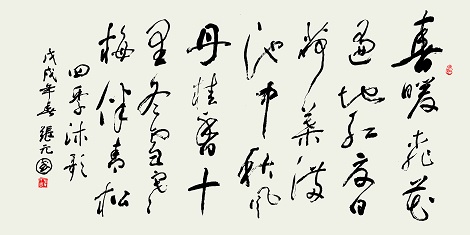 春暖桃花
遍地红夏日
荷葉满
池中秋风
丹桂香十
里冬雪寒
梅伴青松
四季
戊戌年春 張元